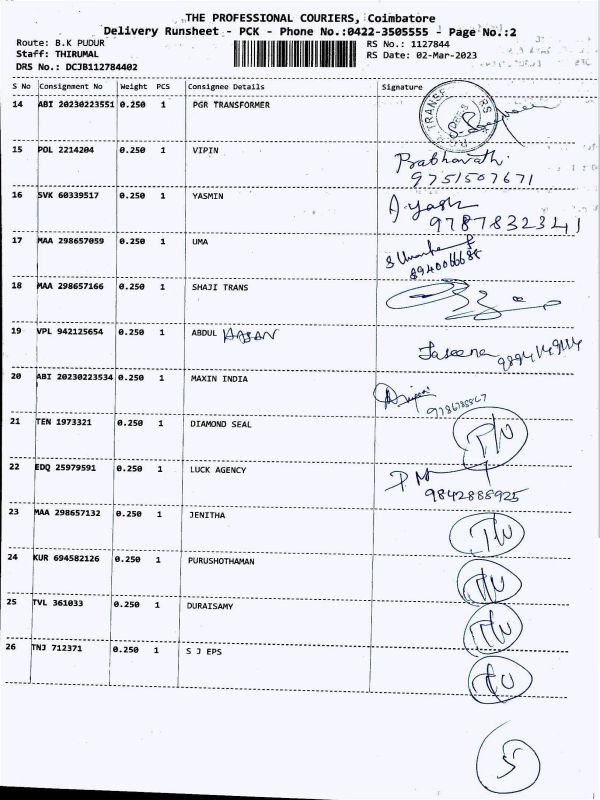 THE PROFESSIONAL COURIERS, Coimbatore
Delivery Runsheet - PCK - Phone No.:0422-3505555 - Page No.:2
Route: B.K PUDUR RS No.: 1127844
Staff: THIRUMAL RS Date: 02-Mar-2023
DRS No.: DCJB112784402
S No Consignment No Weight PCS Consignee Details Signature
14 ABI 20230223551 0.250 1 PGR TRANSFORMER
15 POL 2214204 0.250 1 VIPIN Prabhavathi
9751507671
16 SVK 60339517 0.250 1 YASMIN
9787832341
17 MAA 298657059 0.250 1 UMA
18 MAA 298657166 0.250 1 SHAJI TRANS
19 VPL 942125654 0.250 1 ABDUL HASAN Jaseena
20 ABI 20230223534 0.250 1 MAXIN INDIA
21 TEN 1973321 0.250 1 DIAMOND SEAL
22 EDQ 25979591 0.250 1 LUCK AGENCY
9842888925
23 MAA 298657132 0.250 1 JENITHA
24 KUR 694582126 0.250 1 PURUSHOTHAMAN
25 TVL 361033 0.250 1 DURAISAMY
26 TNJ 712371 0.250 1 S J EPS
5